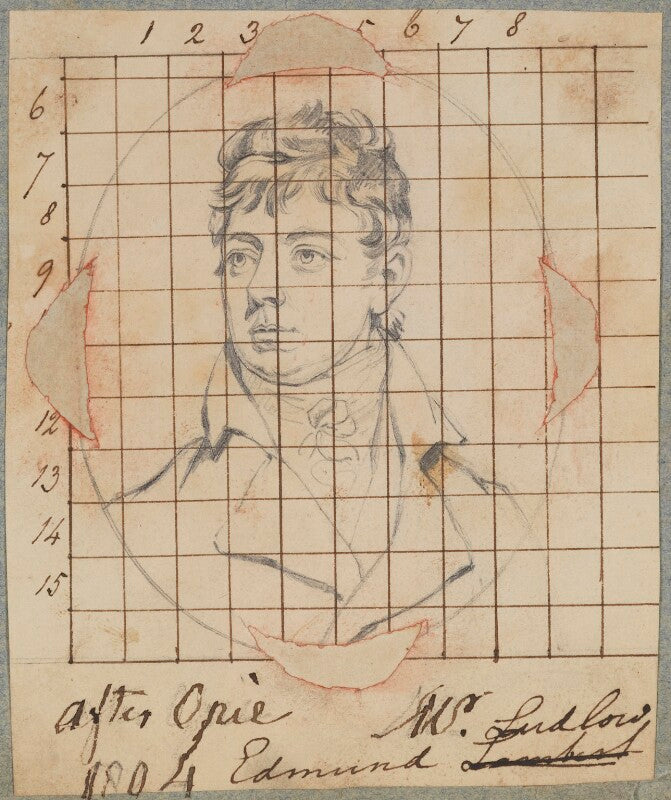 1 2 3 5 6 7 8
6
7
8
9
12
13
14
15
after Opie Mr. Ludlow
1804 Edmund Lambert